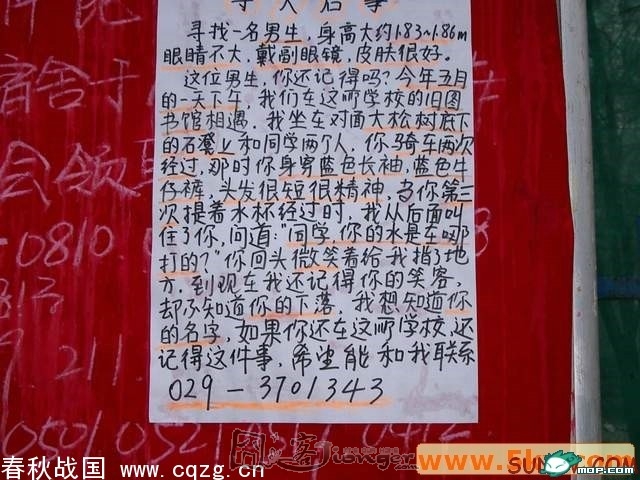 寻人启事
寻找一名男生，身高大约1.83~1.86m
眼睛不大，戴副眼镜，皮肤很好。
这位男生，你还记得吗？今年五月
的一天下午，我们在这所学校的旧图
书馆相遇。我坐在对面大松树底下
的石凳上和同学两个人，你骑车两次
经过，那时你身穿蓝色长袖，蓝色牛
仔裤，头发很短很精神，当你第三
次提着水杯经过时，我从后面叫
住了你，问道："同学，你的水是在哪
打的？"你回头微笑着给我指了地
方，到现在我还记得你的笑容，
却不知道你的下落，我想知道你
的名字，如果你还在这所学校，还
记得这件事，希望能和我联系
029-3701343
宿舍于
会领
-0810
813
9 211
0501 0521
春秋战国 www.cqzg.cn
囧客 Jiongke
www.5
SUN
mop.com